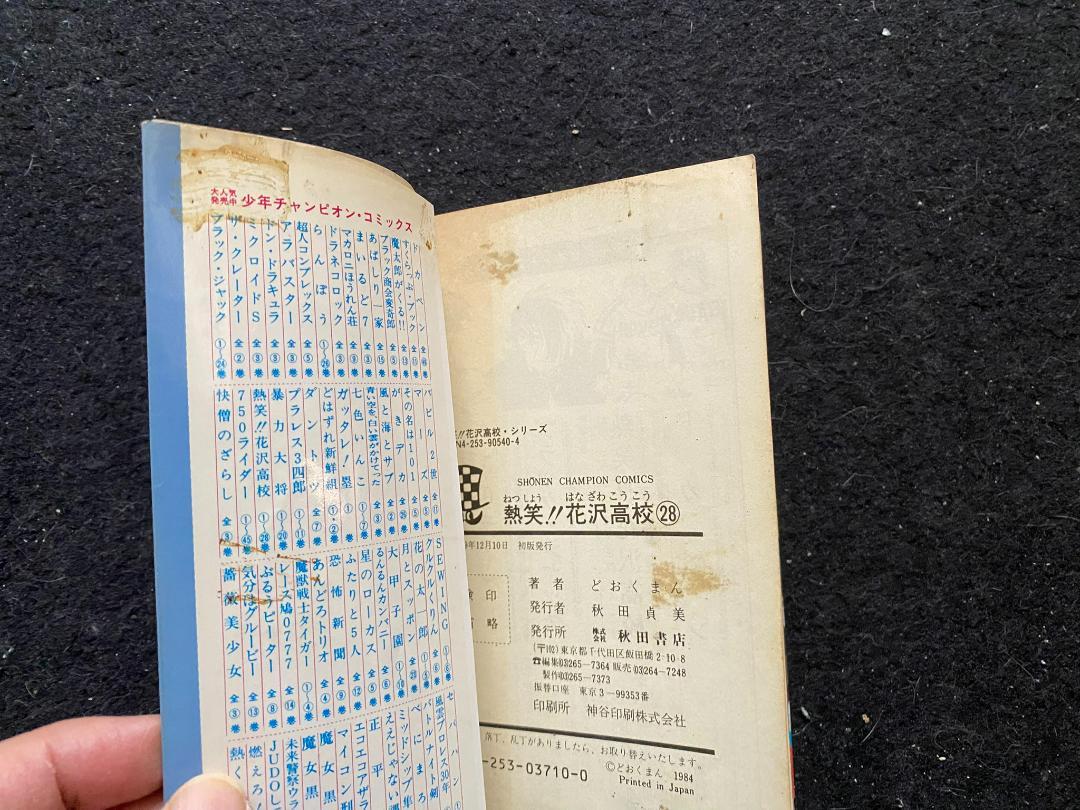 大人気
発売中
少年チャンピオン・コミックス
ドカベン 全㊽巻
すくらっぷ・ブック 全⑪巻
魔太郎がくる!! 全⑬巻
ブラック商会変奇郎 全⑤巻
あばしり一家 全⑮巻
まいるど7 全③巻
マカロニほうれん荘 全⑨巻
ドラネコロック 全③巻
らんぽう ①〜㉖巻
超人コンプレックス 全⑤巻
アラバスター 全③巻
ドン・ドラキュラ 全③巻
ミクロイドS 全③巻
ザ・クレーター 全②巻
ブラック・ジャック ①〜㉔巻
バビル2世 全⑪巻
マーズ 全⑤巻
その名は101 全⑤巻
がきデカ 全㉖巻
風と海とサブ 全②巻
青い空を、白い雲がかけてった 全③巻
七色いんこ ①〜⑦巻
ガッタレ!塁 ①巻
どはずれ新鮮組 ①・②巻
ダントツ 全⑦巻
プラレス3四郎 ①〜⑪巻
暴力大将 ①〜⑳巻
熱笑!!花沢高校 ①〜㉘巻
750ライダー ①〜㊺巻
快僧のざらし 全③巻
SEWING ①〜⑥巻
クルクルくりん 全⑥巻
花の太一郎 ①〜⑤巻
月とスッポン 全㉓巻
大甲子園 ①〜⑩巻
るんるんカンパニー 全⑥巻
星のローカス 全⑤巻
ふたりと5人 全⑫巻
恐怖新聞 全⑨巻
あんどろトリオ 全④巻
魔獣戦士タイガー ①〜④巻
レース鳩0777 全⑭巻
ぶるうピーター 全⑧巻
気分はグルービー 全⑬巻
薔薇美少女 全③巻
セバハン
風雲プロレス30年
バトルナイト剣
べにまろ
ミッドシップ隼
ええじゃない
正平
エコエコアザラ
マイコン刑
魔女黒
魔女黒
未来警察ウラ
JUDOし
燃えろ!
熱く
!!花沢高校・シリーズ
N4-253-90540-4
SHŌNEN CHAMPION COMICS
ねつしょう はなざわこうこう
熱笑!!花沢高校㉘
9年12月10日 初版発行
検印
省略
著者 どおくまん
発行者 秋田貞美
発行所 株式会社 秋田書店
(〒102)東京都千代田区飯田橋2-10-8
☎編集03(265)7364 販売03(264)7248
製作03(265)7373
振替口座 東京3-99353番
印刷所 神谷印刷株式会社
落丁、乱丁がありましたら、お取り替えいたします。
-253-03710-0
©どおくまん 1984
Printed in Japan